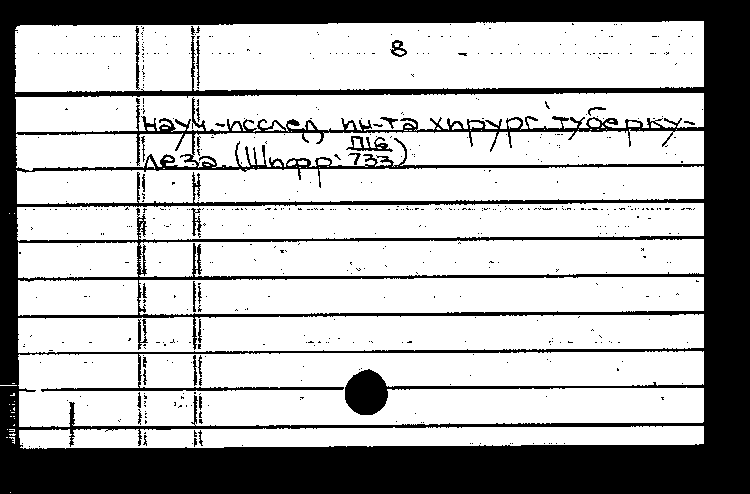 8
науч.-исслед. ин-та хирург. туберку-
леза. (Шифр: П16/733)